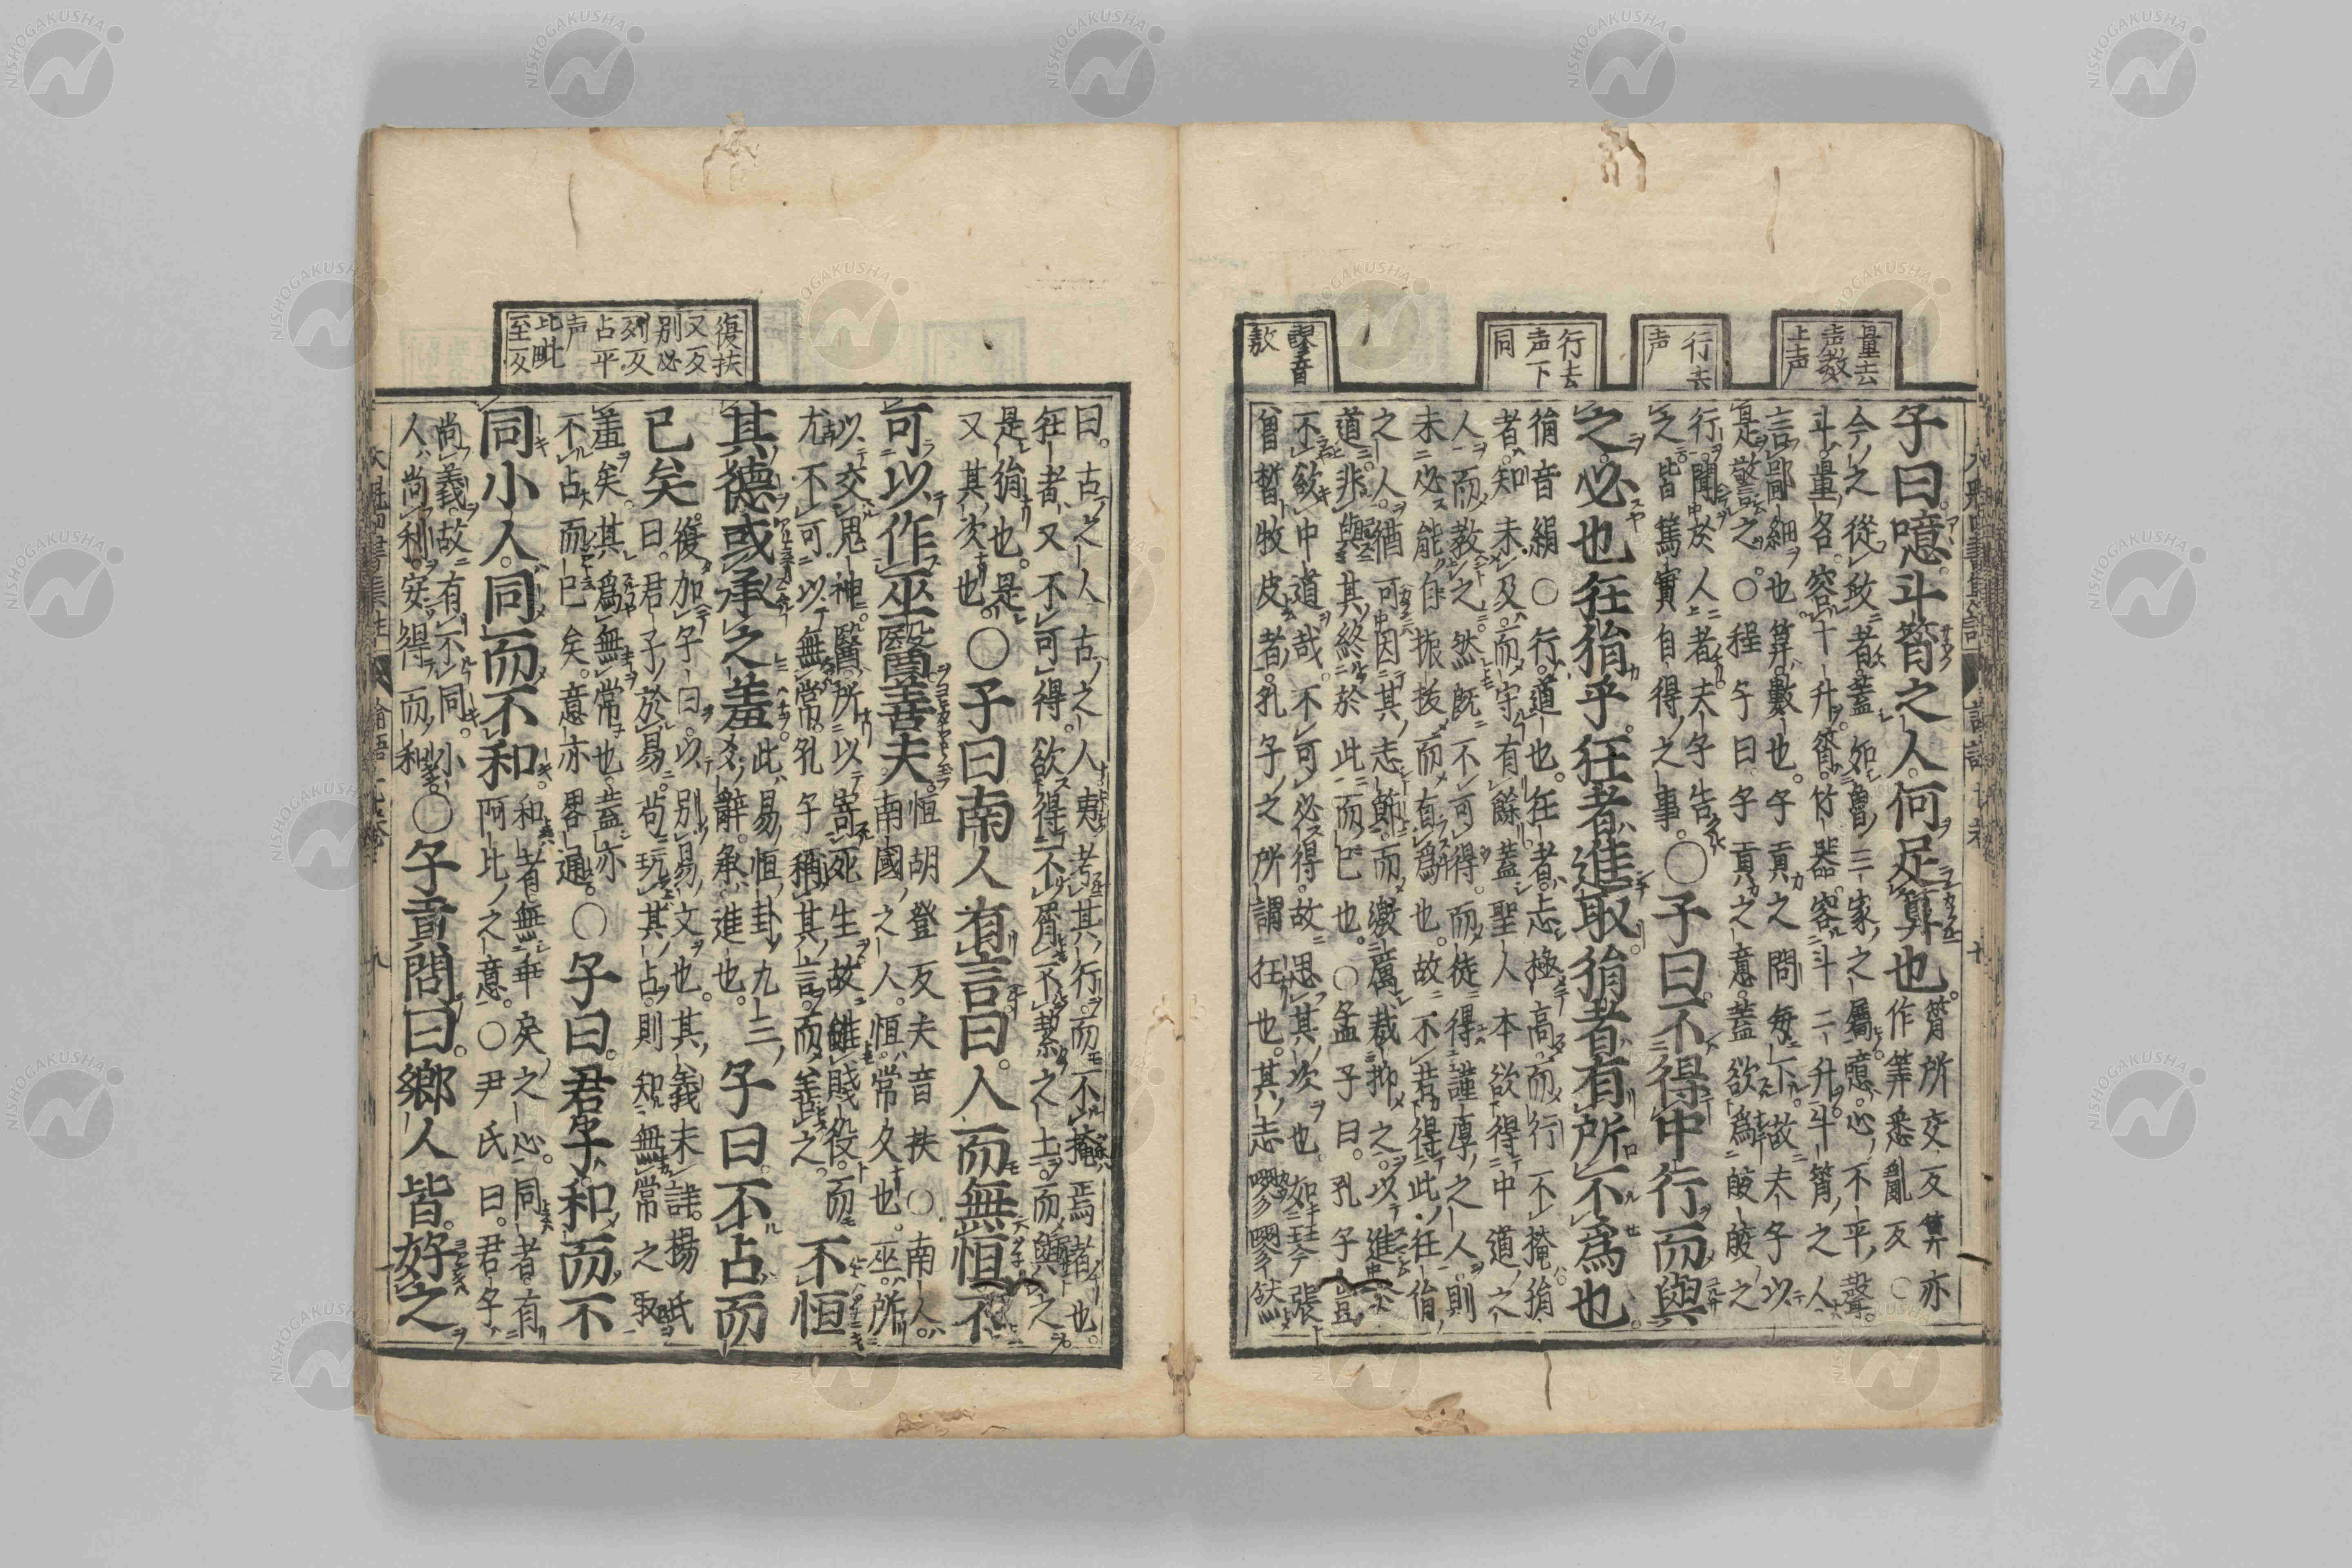 量去
声数
上声
行去
声
行去
声下
同
嘐音
敖
子曰噫斗筲之人何足算也
筲所交反算亦
作筭悉亂反○
今之從政者蓋如魯三家之屬噫心不平聲
斗量名容十升筲竹器容斗二升斗筲之人
言鄙細也算數也子貢之問每下故夫子以
是警之○程子曰子貢之意蓋欲爲皎皎之
行聞於人者夫子告
之皆篤實自得之事
○子曰不得中行而與
之必也狂狷乎狂者進取狷者有所不爲也
狷音絹○行道也狂者志極高而行不掩狷
者知未及而守有餘蓋聖人本欲得中道之
人而教之然旣不可得而徒得謹厚之人則
未必能自振拔而有爲也故不若得此狂狷
之人猶可因其志節而激厲裁抑之以進
道非與其終於此而已也○孟子曰孔子豈
不欲中道哉不可必得故思其次也如琴張
曾晳牧皮者孔子之所謂狂也其志嘐嘐然
復扶
又反
別必
列反
占平
声
比毗
至反
曰古之人古之人夷考其行而不掩焉者也
狂者又不可得欲得不屑不絜之士而與之
是狷也是
又其次也
○子曰南人有言曰人而無恒不
可以作巫醫善夫
恒胡登反夫音扶○南人
南國之人恒常久也巫所
以交鬼神醫所以寄死生故雖賤役而
尤不可以無常孔子稱其言而善之
不恒
其德或承之羞
此易恒卦九三
爻辭承進也
子曰不占而
已矣
復加子曰以別易文也其義未詳楊氏
曰君子於易苟玩其占則知無常之取
羞矣其爲無常也蓋亦
不占而已矣意亦畧通
○子曰君子和而不
同小人同而不和
和者無乖戾之心同者有
阿比之意○尹氏曰君子
尚義故有不同小
人尚利安得而和
○子貢問曰鄉人皆好之